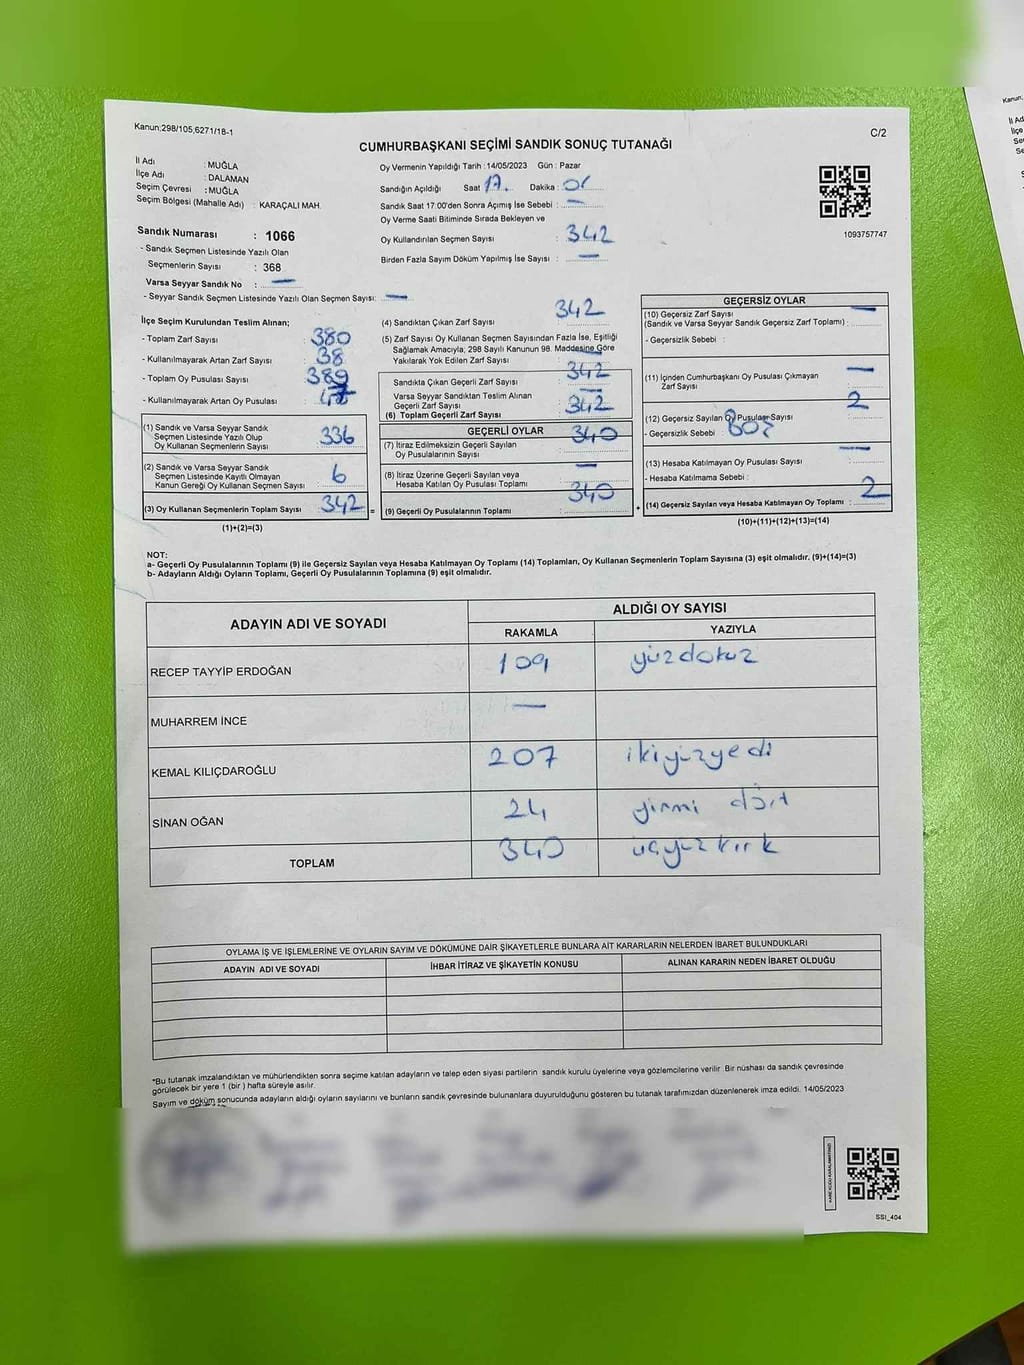 Kanun;298/105,6271/18-1
C/2
CUMHURBAŞKANI SEÇİMİ SANDIK SONUÇ TUTANAĞI
İl Adı : MUĞLA
İlçe Adı : DALAMAN
Seçim Çevresi : MUĞLA
Seçim Bölgesi (Mahalle Adı) : KARAÇALI MAH.
Sandık Numarası : 1066
- Sandık Seçmen Listesinde Yazılı Olan
Seçmenlerin Sayısı : 368
Varsa Seyyar Sandık No : —
- Seyyar Sandık Seçmen Listesinde Yazılı Olan Seçmen Sayısı: —
Oy Vermenin Yapıldığı Tarih : 14/05/2023 Gün : Pazar
Sandığın Açıldığı Saat 17. Dakika :
Sandık Saat 17.00'den Sonra Açımış İse Sebebi : —
Oy Verme Saati Bitiminde Sırada Bekleyen ve
Oy Kullandırılan Seçmen Sayısı : 342
Birden Fazla Sayım Döküm Yapılmış İse Sayısı : —
1093757747
İlçe Seçim Kurulundan Teslim Alınan;
- Toplam Zarf Sayısı : 380
- Kullanılmayarak Artan Zarf Sayısı : 38
- Toplam Oy Pusulası Sayısı : 389
- Kullanılmayarak Artan Oy Pusulası :
(1) Sandık ve Varsa Seyyar Sandık
Seçmen Listesinde Yazılı Olup
Oy Kullanan Seçmenlerin Sayısı : 336
(2) Sandık ve Varsa Seyyar Sandık
Seçmen Listesinde Kayıtlı Olmayan
Kanun Gereği Oy Kullanan Seçmen Sayısı : 6
(3) Oy Kullanan Seçmenlerin Toplam Sayısı : 342 =
(1)+(2)=(3)
(4) Sandıktan Çıkan Zarf Sayısı : 342
(5) Zarf Sayısı Oy Kullanan Seçmen Sayısından Fazla İse, Eşitliği
Sağlamak Amacıyla, 298 Sayılı Kanunun 98. Maddesine Göre
Yakılarak Yok Edilen Zarf Sayısı : —
Sandıkta Çıkan Geçerli Zarf Sayısı : 342
Varsa Seyyar Sandıktan Teslim Alınan
Geçerli Zarf Sayısı : —
(6) Toplam Geçerli Zarf Sayısı : 342
GEÇERLİ OYLAR
(7) İtiraz Edilmeksizin Geçerli Sayılan
Oy Pusulalarının Sayısı : 340
(8) İtiraz Üzerine Geçerli Sayılan veya
Hesaba Katılan Oy Pusulası Toplamı : —
(9) Geçerli Oy Pusulalarının Toplamı : 340 +
GEÇERSİZ OYLAR
(10) Geçersiz Zarf Sayısı
(Sandık ve Varsa Seyyar Sandık Geçersiz Zarf Toplamı) : —
- Geçersizlik Sebebi :
(11) İçinden Cumhurbaşkanı Oy Pusulası Çıkmayan
Zarf Sayısı : —
(12) Geçersiz Sayılan Oy Pusulası Sayısı : 2
- Geçersizlik Sebebi :
(13) Hesaba Katılmayan Oy Pusulası Sayısı : —
- Hesaba Katılmama Sebebi :
(14) Geçersiz Sayılan veya Hesaba Katılmayan Oy Toplamı : 2
(10)+(11)+(12)+(13)=(14)
NOT:
a- Geçerli Oy Pusulalarının Toplamı (9) ile Geçersiz Sayılan veya Hesaba Katılmayan Oy Toplamı (14) Toplamları, Oy Kullanan Seçmenlerin Toplam Sayısına (3) eşit olmalıdır. (9)+(14)=(3)
b- Adayların Aldığı Oyların Toplamı, Geçerli Oy Pusulalarının Toplamına (9) eşit olmalıdır.
ADAYIN ADI VE SOYADI ALDIĞI OY SAYISI
RAKAMLA YAZIYLA
RECEP TAYYİP ERDOĞAN 109 yüzdokuz
MUHARREM İNCE —
KEMAL KILIÇDAROĞLU 207 ikiyüzyedi
SİNAN OĞAN 24 yirmi dört
TOPLAM 340 üçyüzkırk
OYLAMA İŞ VE İŞLEMLERİNE VE OYLARIN SAYIM VE DÖKÜMÜNE DAİR ŞİKAYETLERLE BUNLARA AİT KARARLARIN NELERDEN İBARET BULUNDUKLARI
ADAYIN ADI VE SOYADI İHBAR İTİRAZ VE ŞİKAYETİN KONUSU ALINAN KARARIN NEDEN İBARET OLDUĞU
*Bu tutanak imzalandıktan ve mühürlendikten sonra seçime katılan adayların ve talep eden siyasi partilerin sandık kurulu üyelerine veya gözlemcilerine verilir. Bir nüshası da sandık çevresinde
görülecek bir yere 1 (bir ) hafta süreyle asılır.
Sayım ve döküm sonucunda adayların aldığı oyların sayılarını ve bunların sandık çevresinde bulunanlara duyurulduğunu gösteren bu tutanak tarafımızdan düzenlenerek imza edildi. 14/05/2023
SSI_404